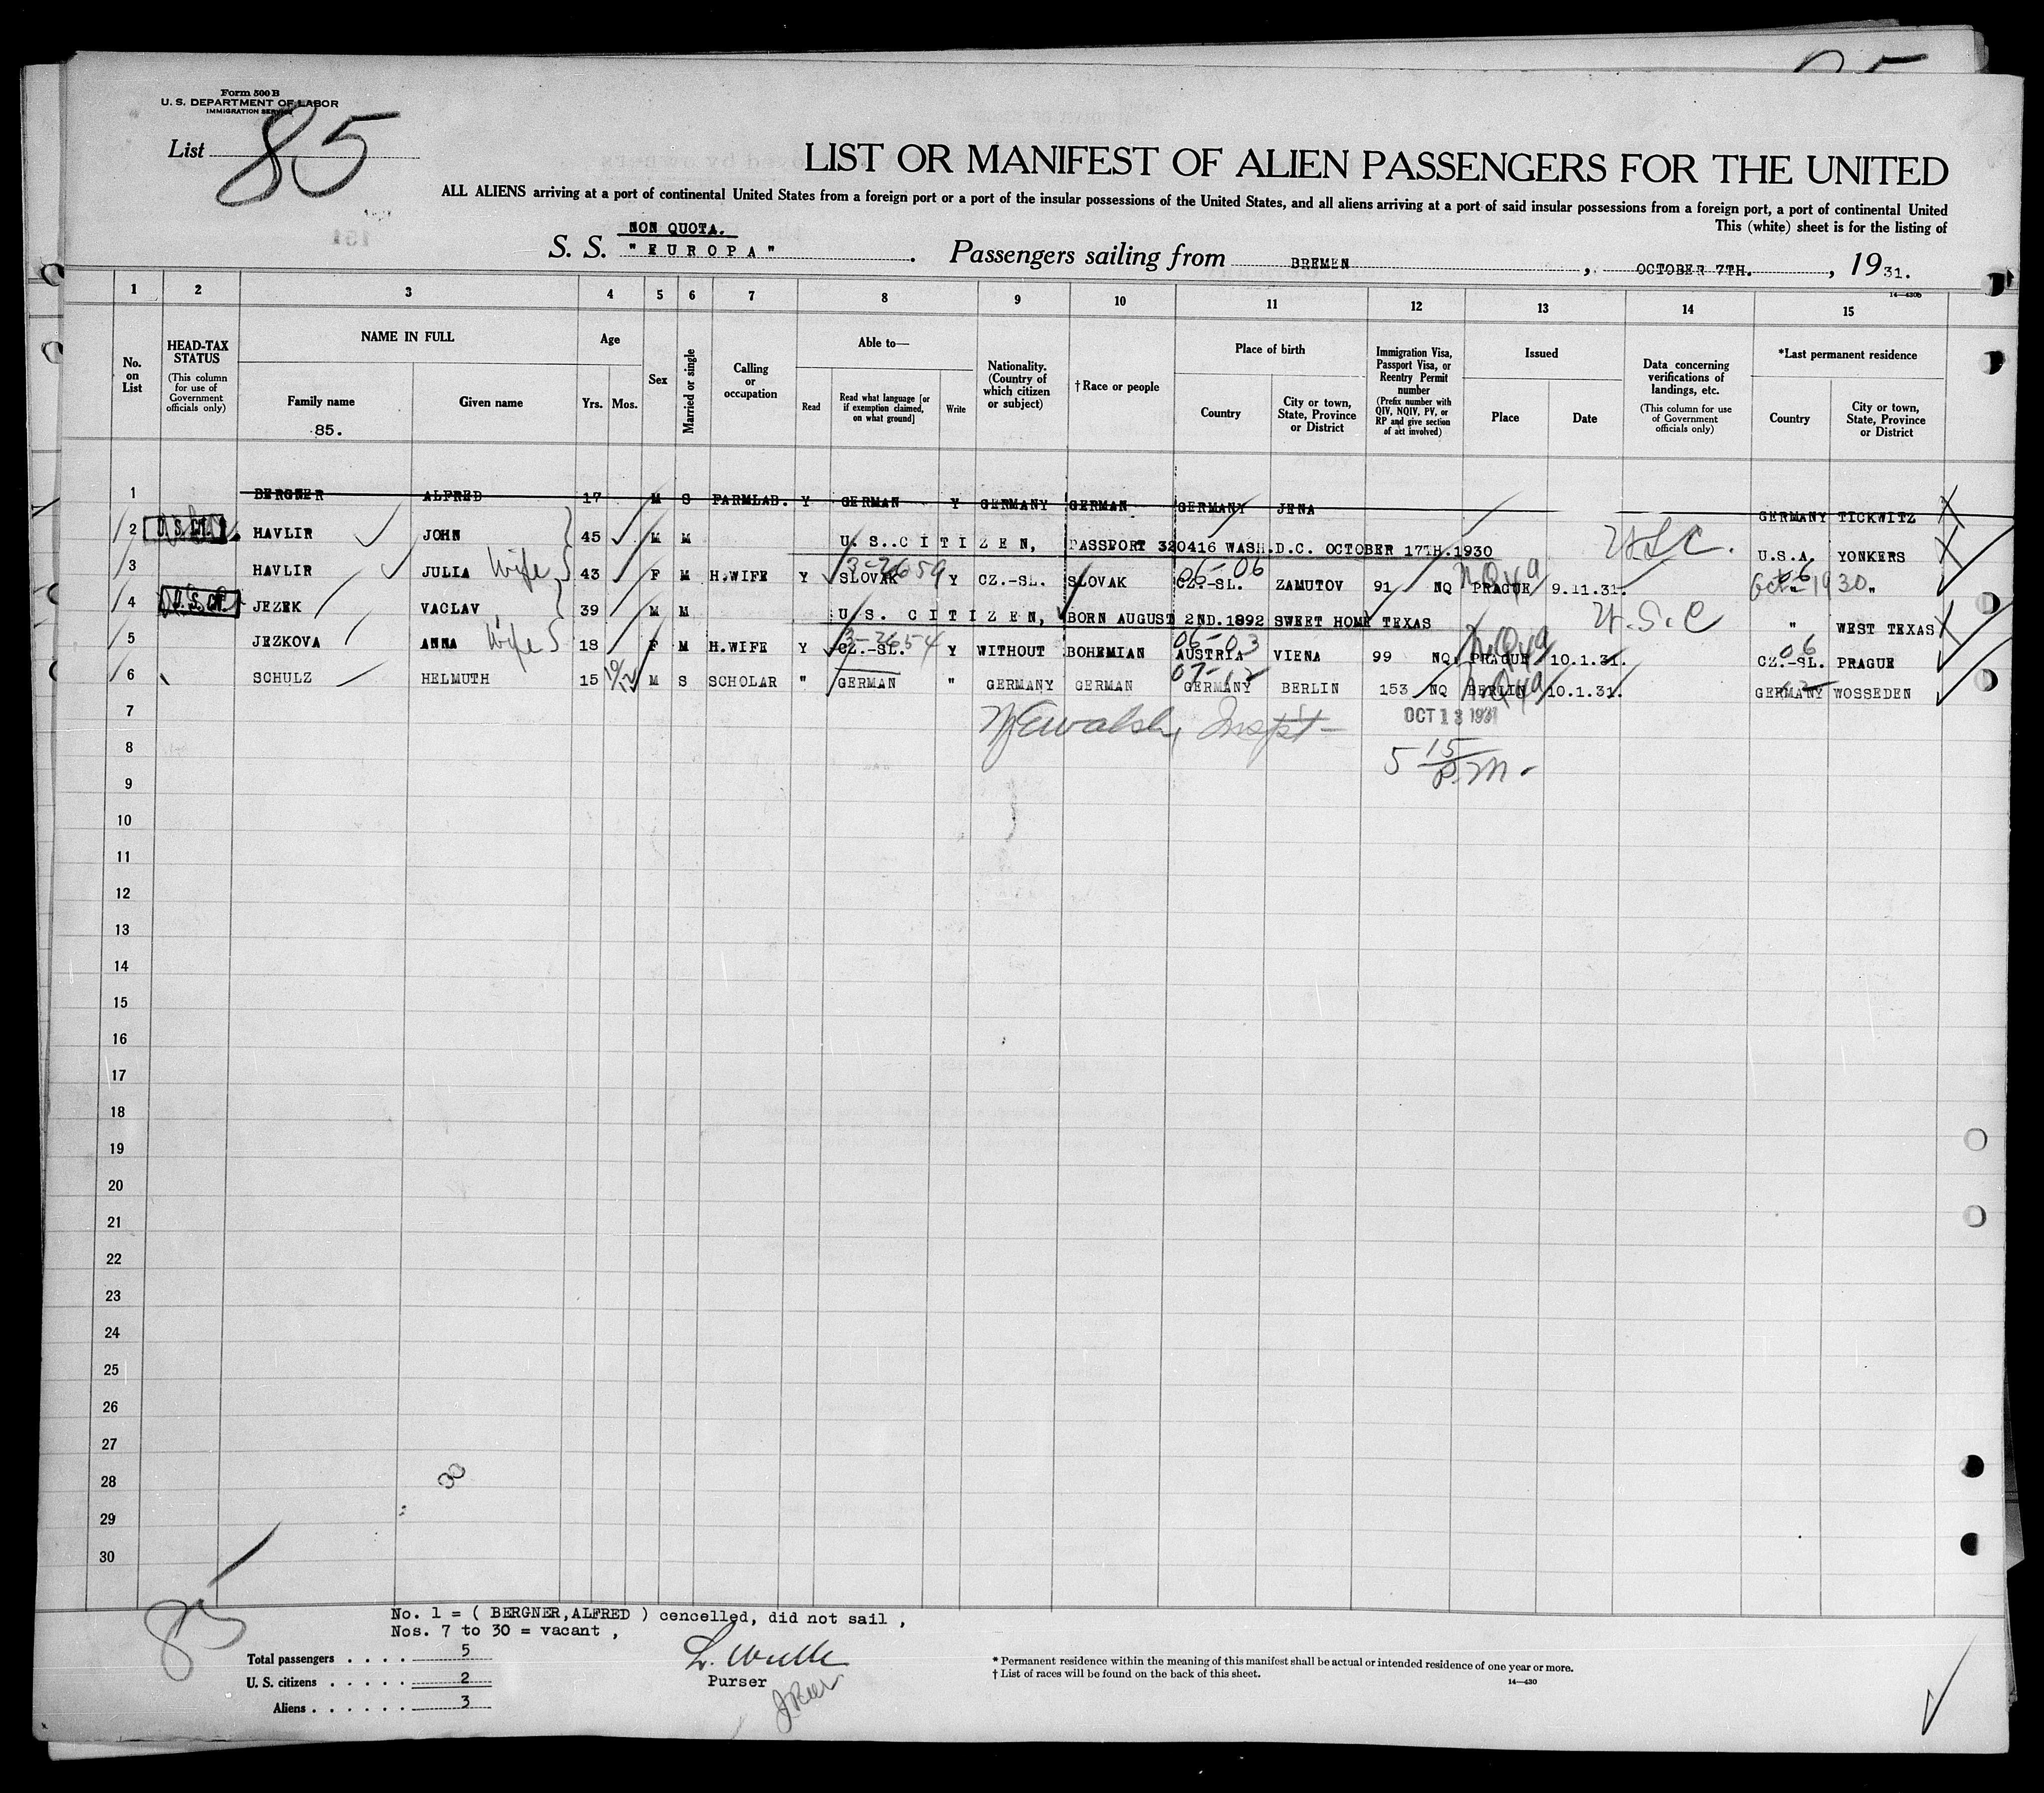 Form 500 B
U. S. DEPARTMENT OF LABOR
IMMIGRATION SERVICE
List 85
LIST OR MANIFEST OF ALIEN PASSENGERS FOR THE UNITED
ALL ALIENS arriving at a port of continental United States from a foreign port or a port of the insular possessions of the United States, and all aliens arriving at a port of said insular possessions from a foreign port, a port of continental United
This (white) sheet is for the listing of
NON QUOTA.
S. S. "EUROPA". Passengers sailing from BREMEN, OCTOBER 7TH., 1931.
14—430b
1 2 3 4 5 6 7 8 9 10 11 12 13 14 15
No. on List
HEAD-TAX STATUS (This column for use of Government officials only)
NAME IN FULL
Family name
85.
Given name
Age
Yrs. Mos.
Sex
Married or single
Calling or occupation
Able to—
Read
Read what language [or if exemption claimed, on what ground]
Write
Nationality. (Country of which citizen or subject)
†Race or people
Place of birth
Country
City or town, State, Province or District
Immigration Visa, Passport Visa, or Reentry Permit number (Prefix number with QIV, NQIV, PV, or RP and give section of act involved)
Issued
Place
Date
Data concerning verifications of landings, etc. (This column for use of Government officials only)
*Last permanent residence
Country
City or town, State, Province or District
1 BERGNER ALFRED 17 M S FARMLAB. Y GERMAN Y GERMANY GERMAN GERMANY JENA GERMANY TICKWITZ
2 U.S.CIT. HAVLIR JOHN 45 M M U.S. CITIZEN, PASSPORT 320416 WASH.D.C. OCTOBER 17TH.1930 USC. U.S.A. YONKERS
3 HAVLIR JULIA Wife 43 F M H.WIFE Y SLOVAK 3-26659 Y CZ.-SL. SLOVAK CZ.-SL. 06-06 ZAMUTOV 91 NQ PRAGUE 9.11.31. Oct 1930 "
4 U.S.CIT. JEZEK VACLAV 39 M M U.S. CITIZEN, BORN AUGUST 2ND.1892 SWEET HOME TEXAS U.S.C " WEST TEXAS
5 JEZKOVA ANNA Wife 18 F M H.WIFE Y CZ.-SL. 3-2654 Y WITHOUT BOHEMIAN AUSTRIA 06-03 VIENA 99 NQ. PRAGUE 10.1.31. 06 CZ.-SL. PRAGUE
6 SCHULZ HELMUTH 15 10/12 M S SCHOLAR " GERMAN " GERMANY GERMAN GERMANY 07-12 BERLIN 153 NQ BERLIN 10.1.31. GERMANY WOSSEDEN
7 OCT 13 1931
8 5 15 P.M.
9
10
11
12
13
14
15
16
17
18
19
20
21
22
23
24
25
26
27
28
29
30
No. 1 = ( BERGNER,ALFRED ) cencelled, did not sail ,
Nos. 7 to 30 = vacant ,
85
Total passengers . . . . 5
U. S. citizens . . . . . 2
Aliens . . . . . . 3
Purser
* Permanent residence within the meaning of this manifest shall be actual or intended residence of one year or more.
† List of races will be found on the back of this sheet.
14—430